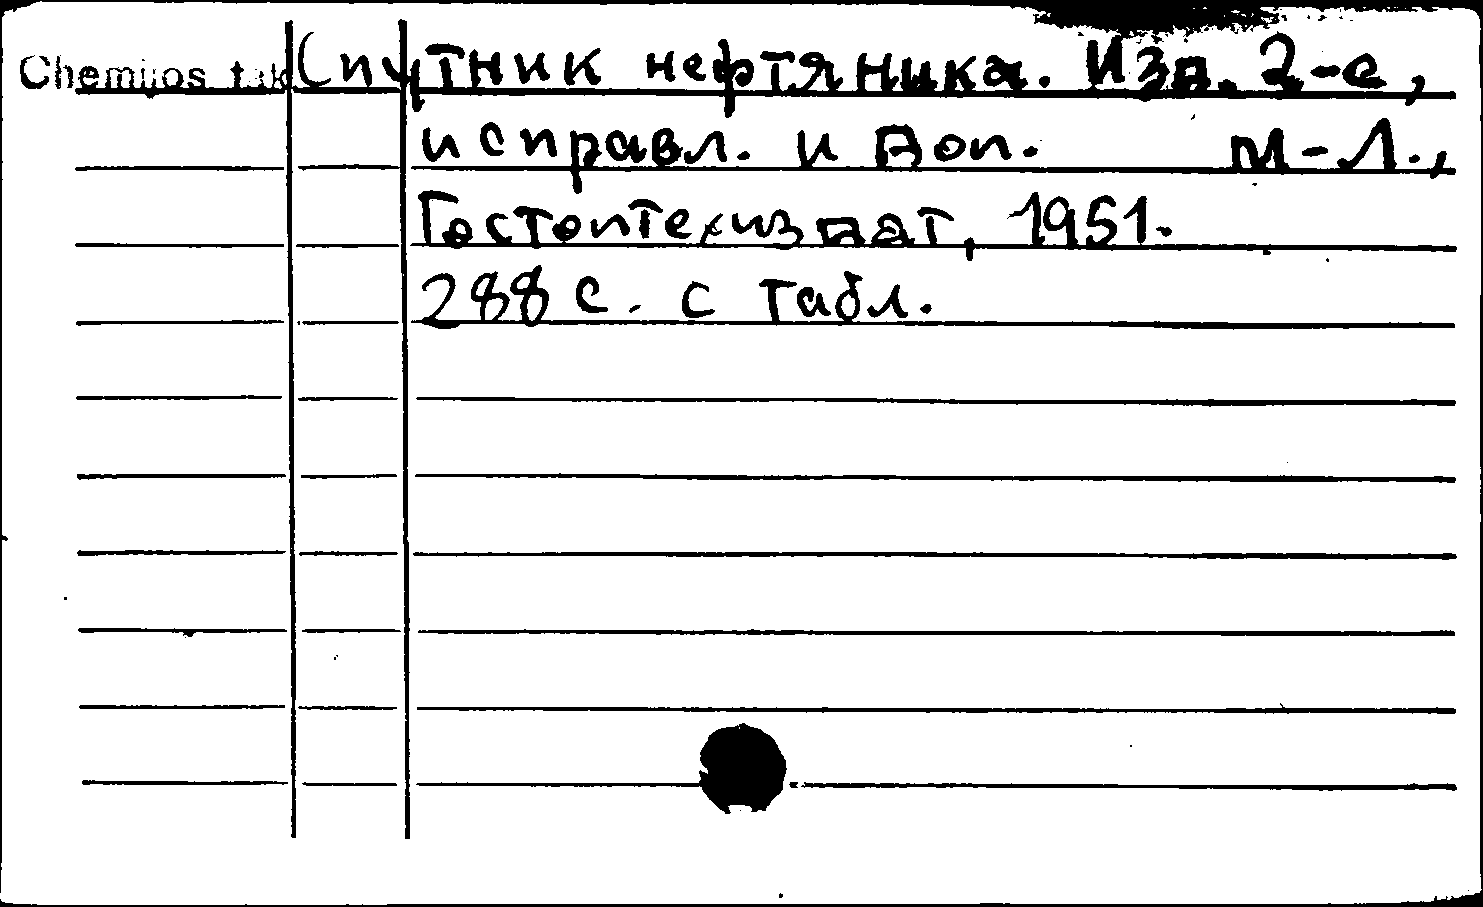 Chemijos tak Спутник нефтяника. Изд. 2-е,
исправл. и доп. М-Л.,
Гостоптехиздат, 1951.
288 с. с табл.